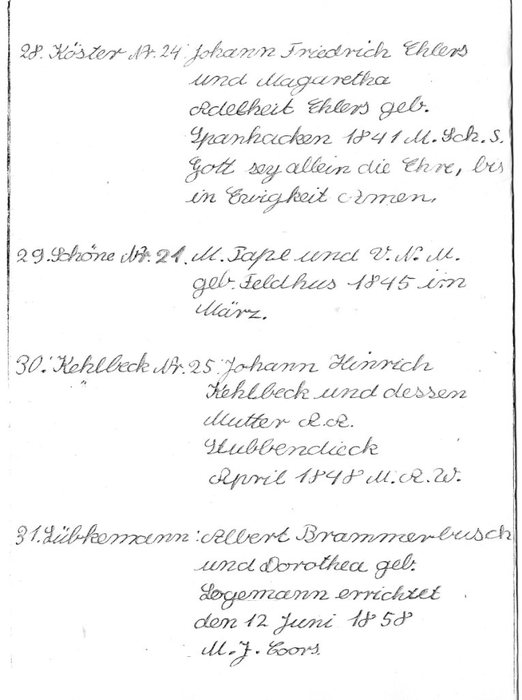 28. Köster Nr. 24 Johann Friedrich Ehlers
und Magaretha
Adelheit Ehlers geb.
Spanhacken 1841 M. Sch. S.
Gott sey allein die Ehre, bis
in Ewigkeit Amen.
29. Schöne Nr. 21. M. Pape und V. N. M.
geb. Feldhus 1845 im
März.
30. Kehlbeck Nr. 25 Johann Hinrich
" Kehlbeck und dessen
Mutter A. A.
Stubbendieck
April 1848 M. A. W.
31. Lübkemann: Albert Brammerbusch
und Dorothea geb.
Logemann errichtet
den 12 Juni 1858
M. J. Coors